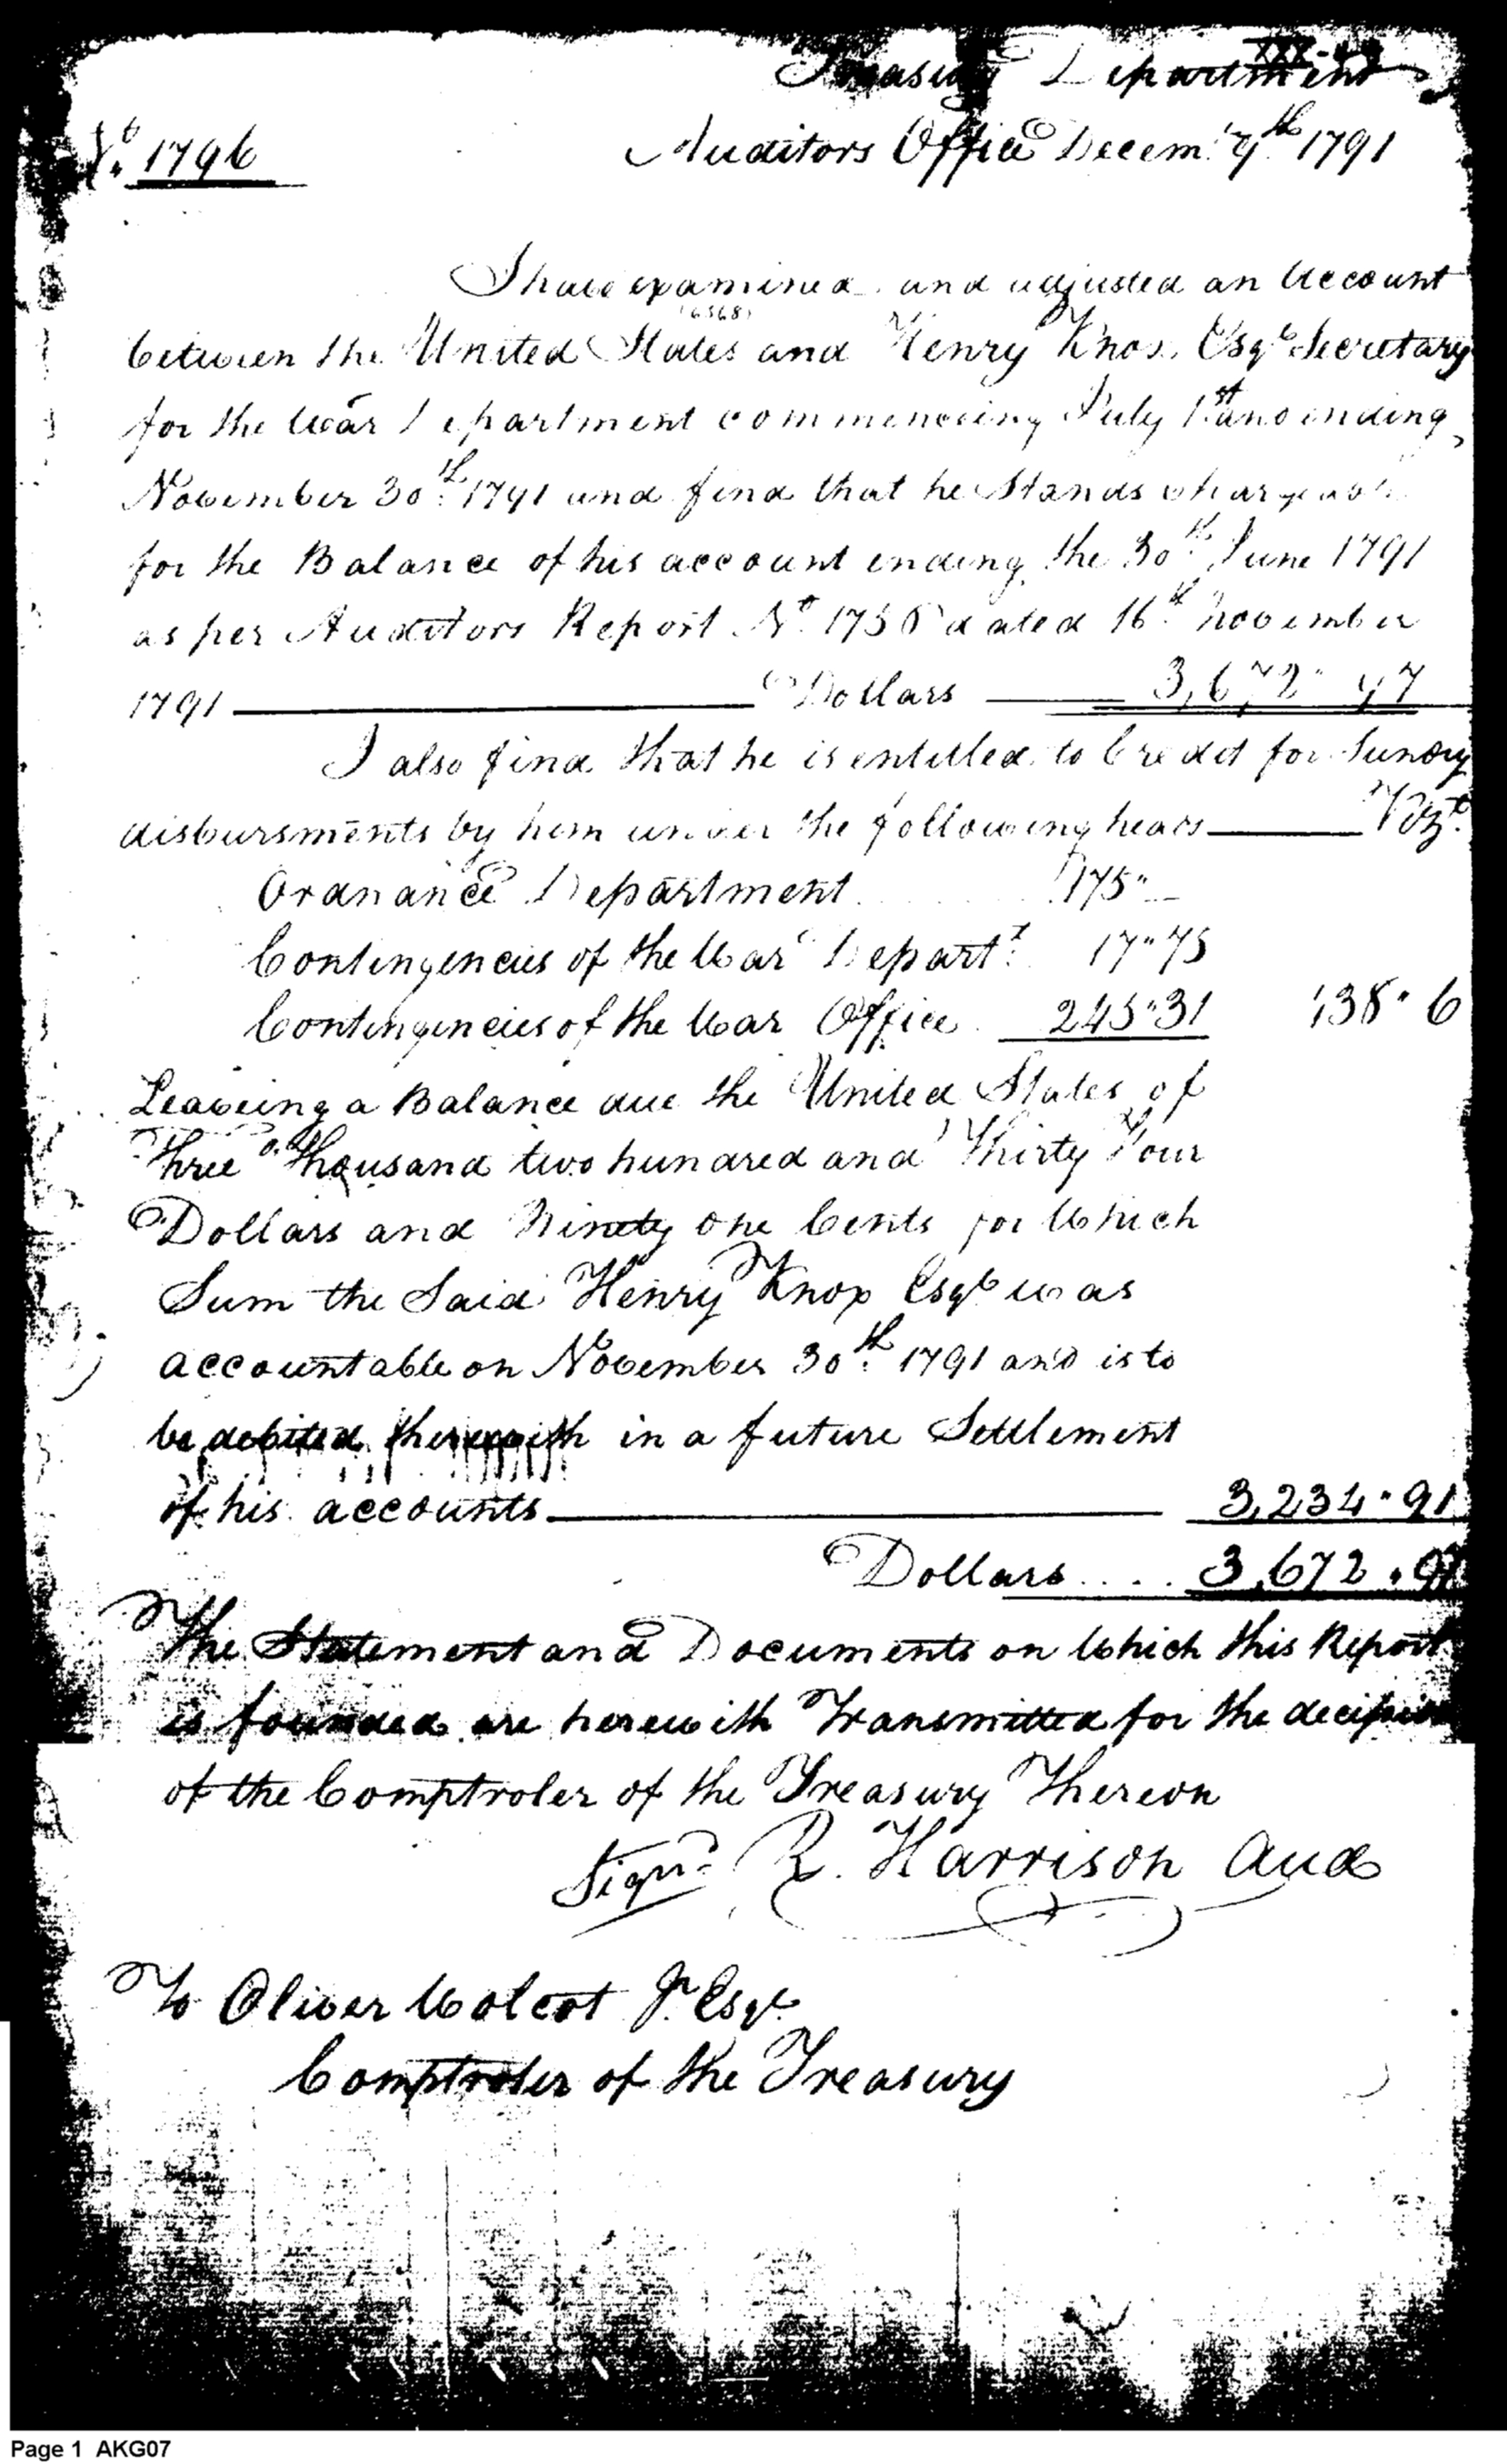 Treasury Department
No. 1796
Auditors Office Decem.r 9th 1791
I have examined and adjusted an Account
between the United States and Henry Knox Esqr Secretary
for the War Department commenceing July 1st and ending
November 30th 1791 and find that he Stands chargeable
for the Balance of his account ending the 30th June 1791
as per Auditors Report No. dated 16th November
1791 Dollars 3,672" 97
I also find that he is entitled to Credit for Sundry
disbursments by him under the following heads Vizt.
Ordnance Department 175"
Contingencies of the War Departt. 17"75
Contingencies of the War Office 245"31 438" 6
Leaveing a Balance due the United States of
Three Thousand two hundred and Thirty Four
Dollars and Ninety one Cents for Which
Sum the Said Henry Knox Esqr was
accountable on November 30th. 1791 and is to
be debited therewith in a future Settlement
of his accounts 3,234"91
Dollars .... 3,672"97
The Statement and Documents on Which this Report
is founded are herewith Transmitted for the decission
of the Comptroler of the Treasury Thereon
Signd R. Harrison Aud
To Oliver Wolcot Jr. Esqr.
Comptroler of the Treasury
Page 1 AKG07